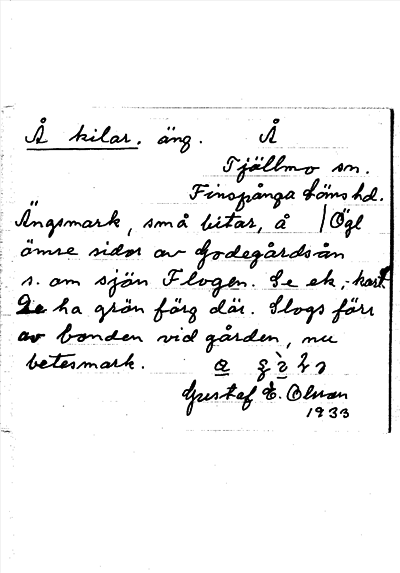 Å kilar. äng. Å
Tjällmo sn.
Finspånga läns hd.
Ängsmark, små bitar, å | Ögl
ömse sidor av Godegårdsån
s. om sjön Flogen. Se ek.-kart.
De ha grön färg där. Slogs förr
av bonden vid gården, nu
betesmark.
Gustaf E. Olsson
1933